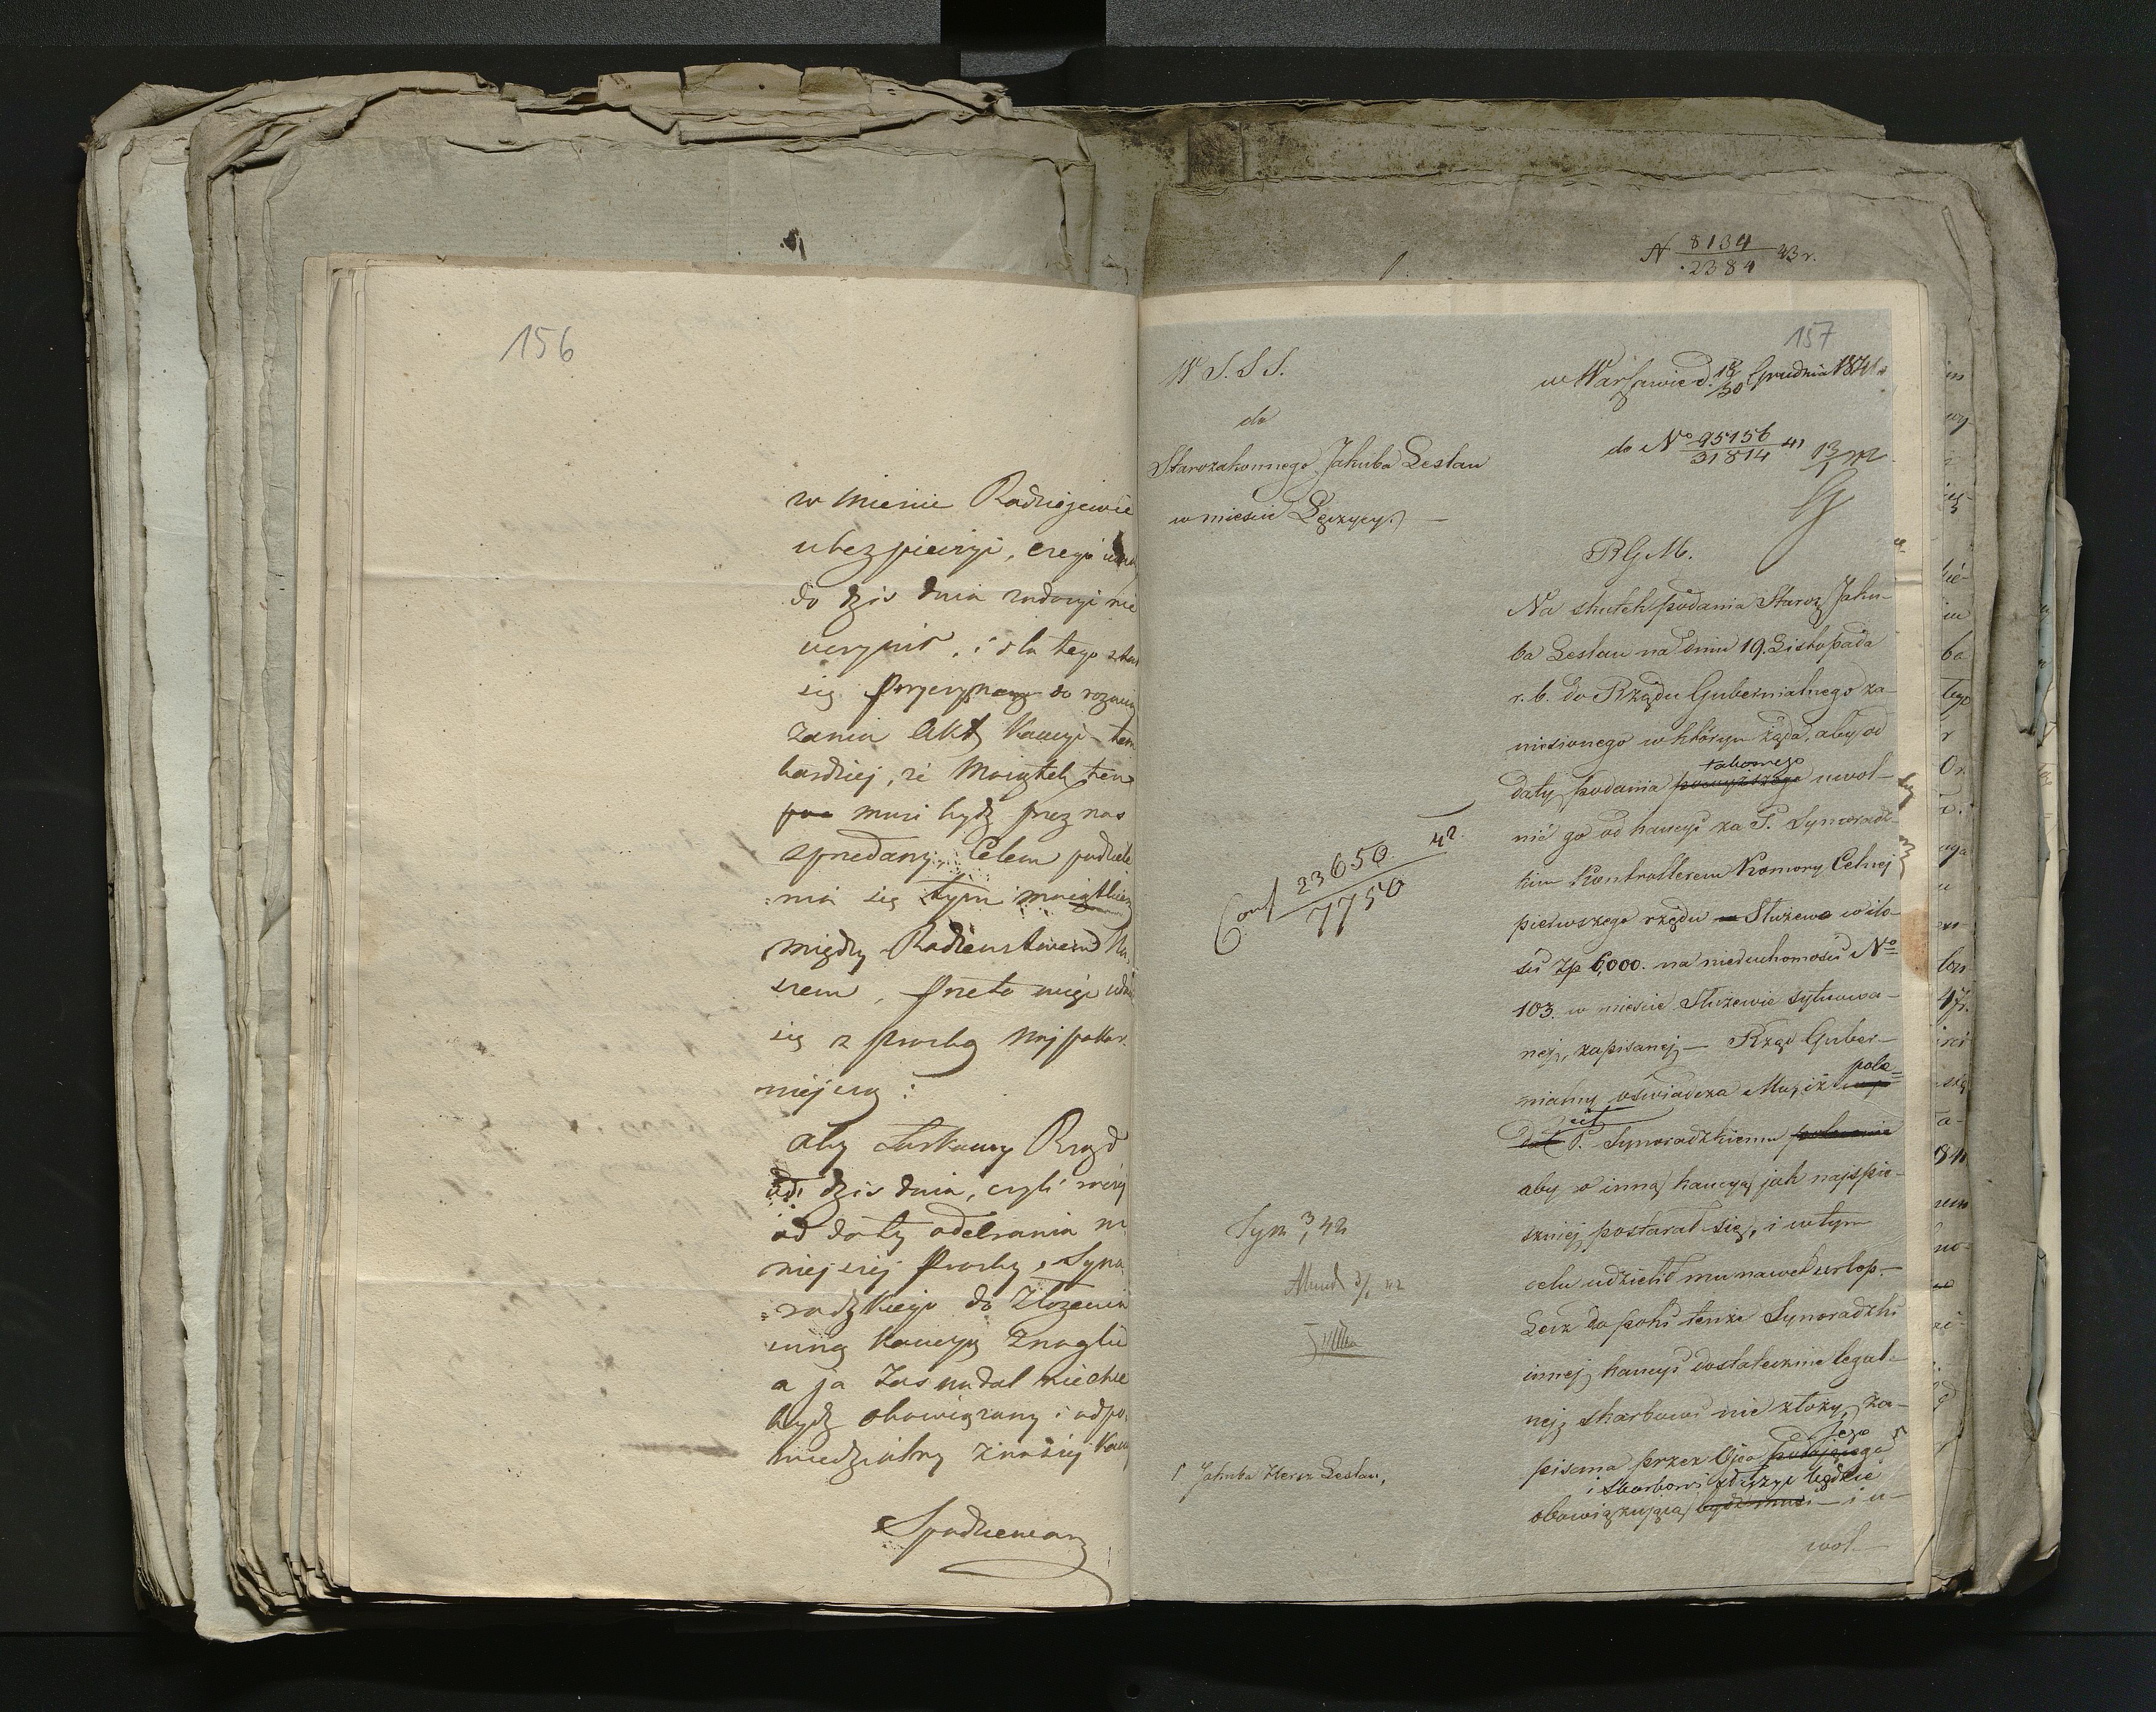 156
w mieście Radziejewie
ubezpieczyć, czego
do dziś dnia zadosyć nie
uczynił, i dla tego
się przyczynę do rozwią
zania Akt Kaucyi tem
bardziej, że Majątek ten
musi bydź przez nas
sprzedany. Celem podziele
nia się tym majątkiem
między Rodzeństwem Na
szem, przeto mię
się z prosbą Najpokor.
niejszą:
aby Łaskawy Rząd
od dziś dnia, czyli
od daty odebrania ni
niejszej prosby, Syno
radzkiego do Złożenia
inną Kaucyą Znaglił
a ja Zas nadal niechce
bydź obowiązany i odpo,
wiedzialny
Spodziewam
N 8134/2384 43 r.
157
W S. S S.
do
Starozakonnego Jakuba Leslau
w mieście Łęczycy.
w Warszawie d. 18/30 Grudnia 1841.
do No 95156/31814 41
RGM.
Na skutek podania Staroz Jaku-
ba Leslau na dniu 19. Listopada
r. b. do Rządu Gubernialnego za-
niesionego w którym żąda, aby od
takowego
daty podania uwol-
nić go od kaucyi za P. Synoradz-
kim Kontrollerem Komory Celnej
pierwszego rzędu Służewo w ilo-
ści Zp 6,000. na nieruchomości No
103. w mieście Służewie sytuowa-
nej, zapisanej - Rząd Guber-
nialny oświadcza Mu, iż pole=
cił P. Synoradzkiemu polecenie
aby o inną kaucyą jak najspie-
szniej postarał się, i w tym
celu udzielił mu nawet urlop. -
Lecz do póki tenże Synoradzki
innej kaucyi dostatecznie legal-
nej, skarbowi nie złoży, za-
Jego
pisana przez Ojca
i Skarbowi służyć będzie
obowiązującą - i u-
wol-
Conf 23650/7750 42.
Syn 3/1 42
Mund 3/1 42
Γ Jakuba Hersz Leslau,